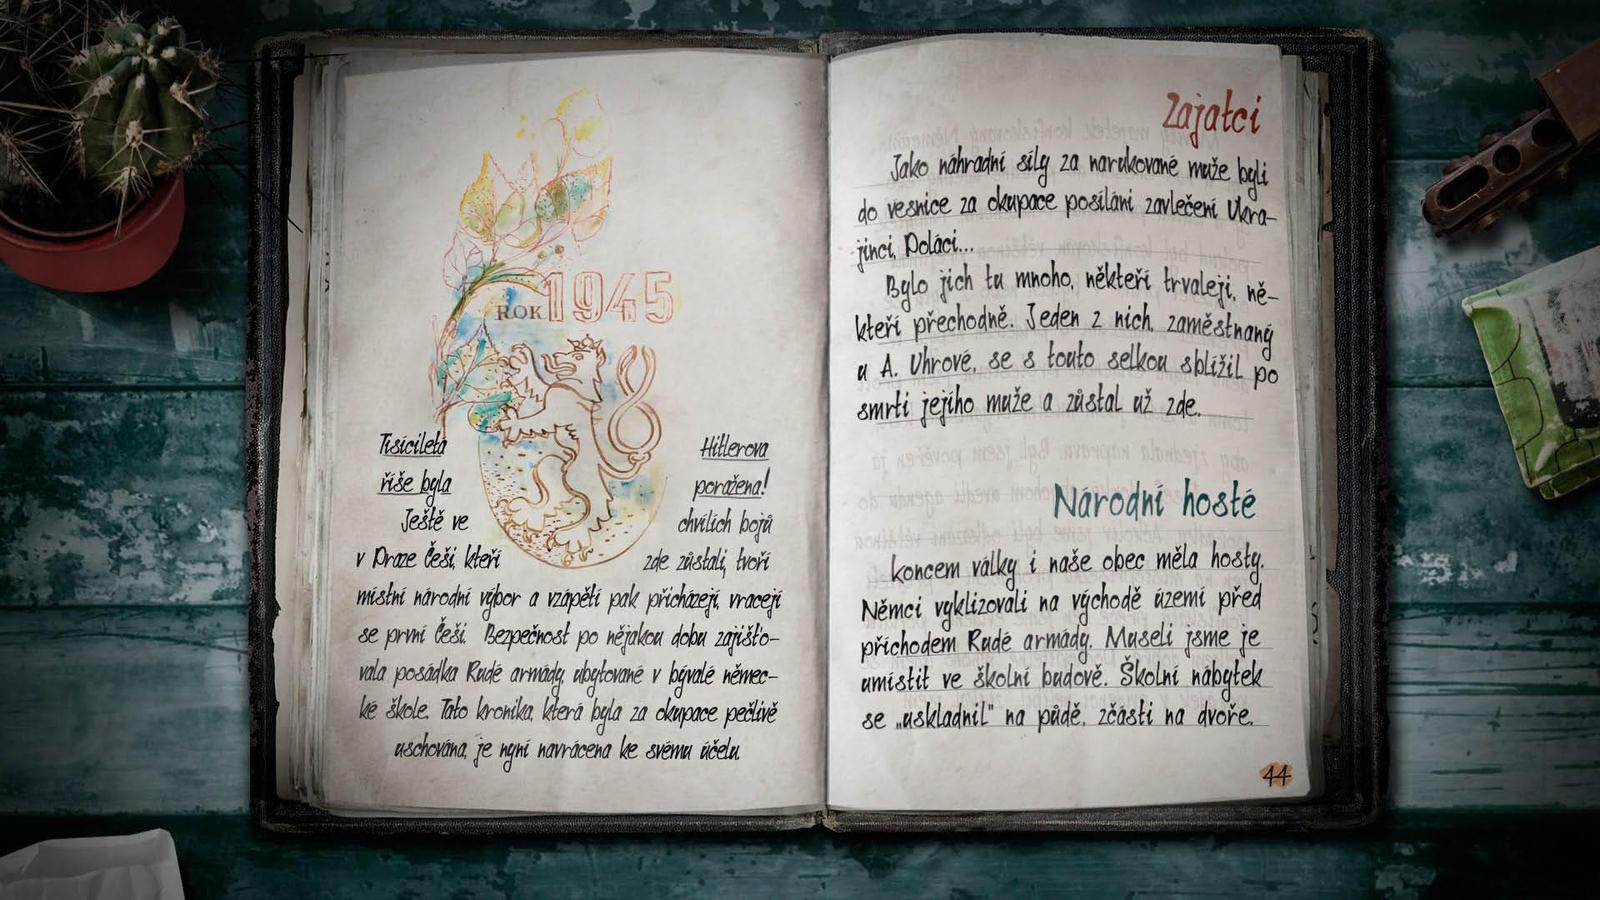 ROK 1945
Tisíciletá Hitlerova
říše byla poražena!
Ještě ve chvílích bojů
v Praze Češi, kteří zde zůstali, tvoří
místní národní výbor a vzápětí pak přicházejí, vracejí
se první Češi. Bezpečnost po nějakou dobu zajišťo-
vala posádka Rudé armády ubytované v bývalé němec-
ké škole. Tato kronika, která byla za okupace pečlivě
uschována, je nyní navrácena ke svému účelu.
Zajatci
Jako náhradní síly za narukované muže byli
do vesnice za okupace posíláni zavlečení Ukra-
jinci, Poláci...
Bylo jich tu mnoho, někteří trvaleji, ně-
kteří přechodně. Jeden z nich, zaměstnaný
u A. Uhrové, se s touto selkou sblížil po
smrti jejího muže a zůstal už zde.
Národní hosté
koncem války i naše obec měla hosty.
Němci vyklizovali na východě území před
příchodem Rudé armády. Museli jsme je
umístit ve školní budově. Školní nábytek
se „uskladnil" na půdě, zčásti na dvoře.
44